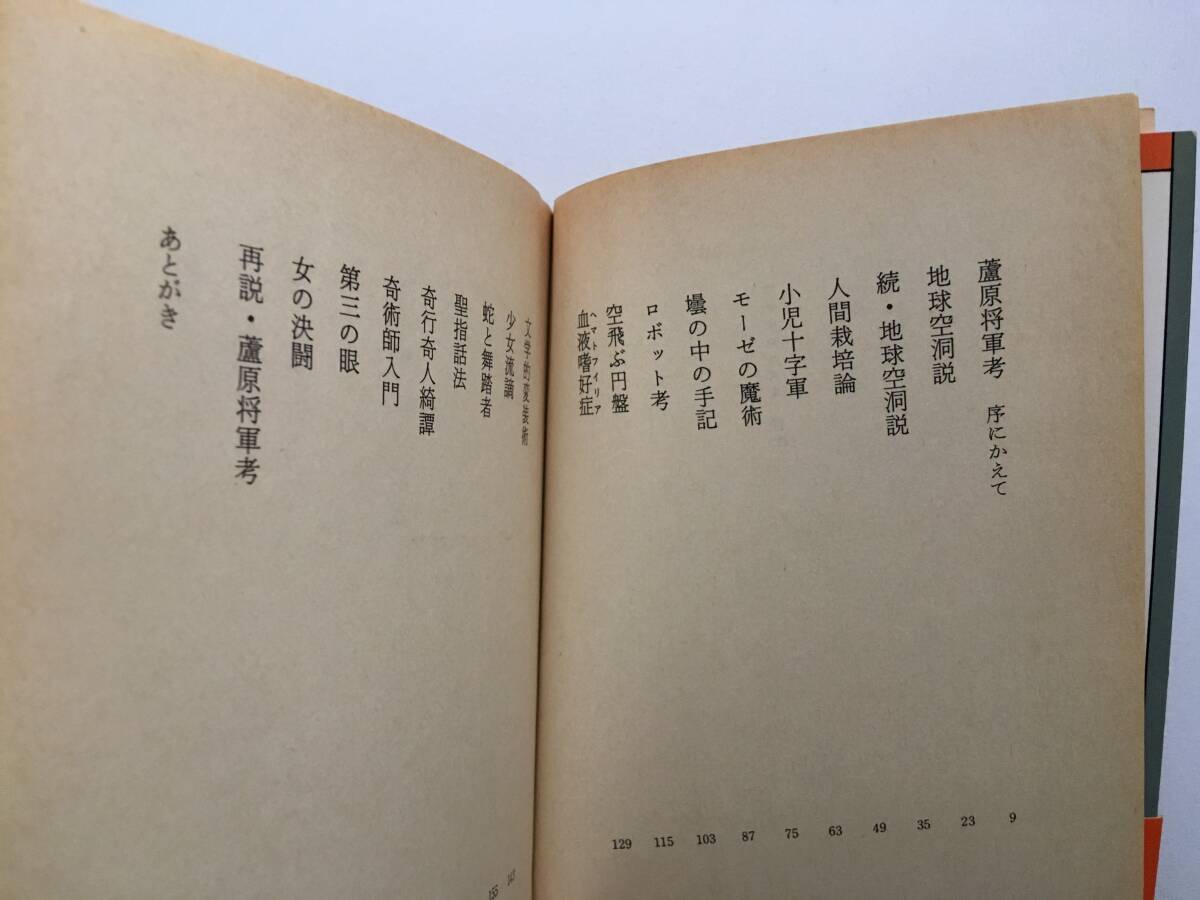 蘆原将軍考 序にかえて
地球空洞説
続・地球空洞説
人間栽培論
小児十字軍
モーゼの魔術
壜の中の手記
ロボット考
空飛ぶ円盤
血液嗜好症
ヘマトフイリア
9
23
35
49
63
75
87
103
115
129
文学的変装術
少女流謫
蛇と舞踏者
聖指話法
奇行奇人綺譚
奇術師入門
第三の眼
女の決闘
再説・蘆原将軍考
あとがき
143
155